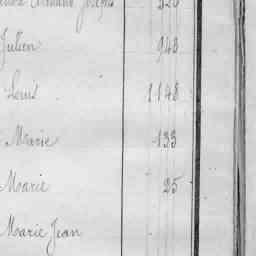 Armand Joseph
Julien 948
Louis 1148
Marie 133
Marie 25
Marie Jean